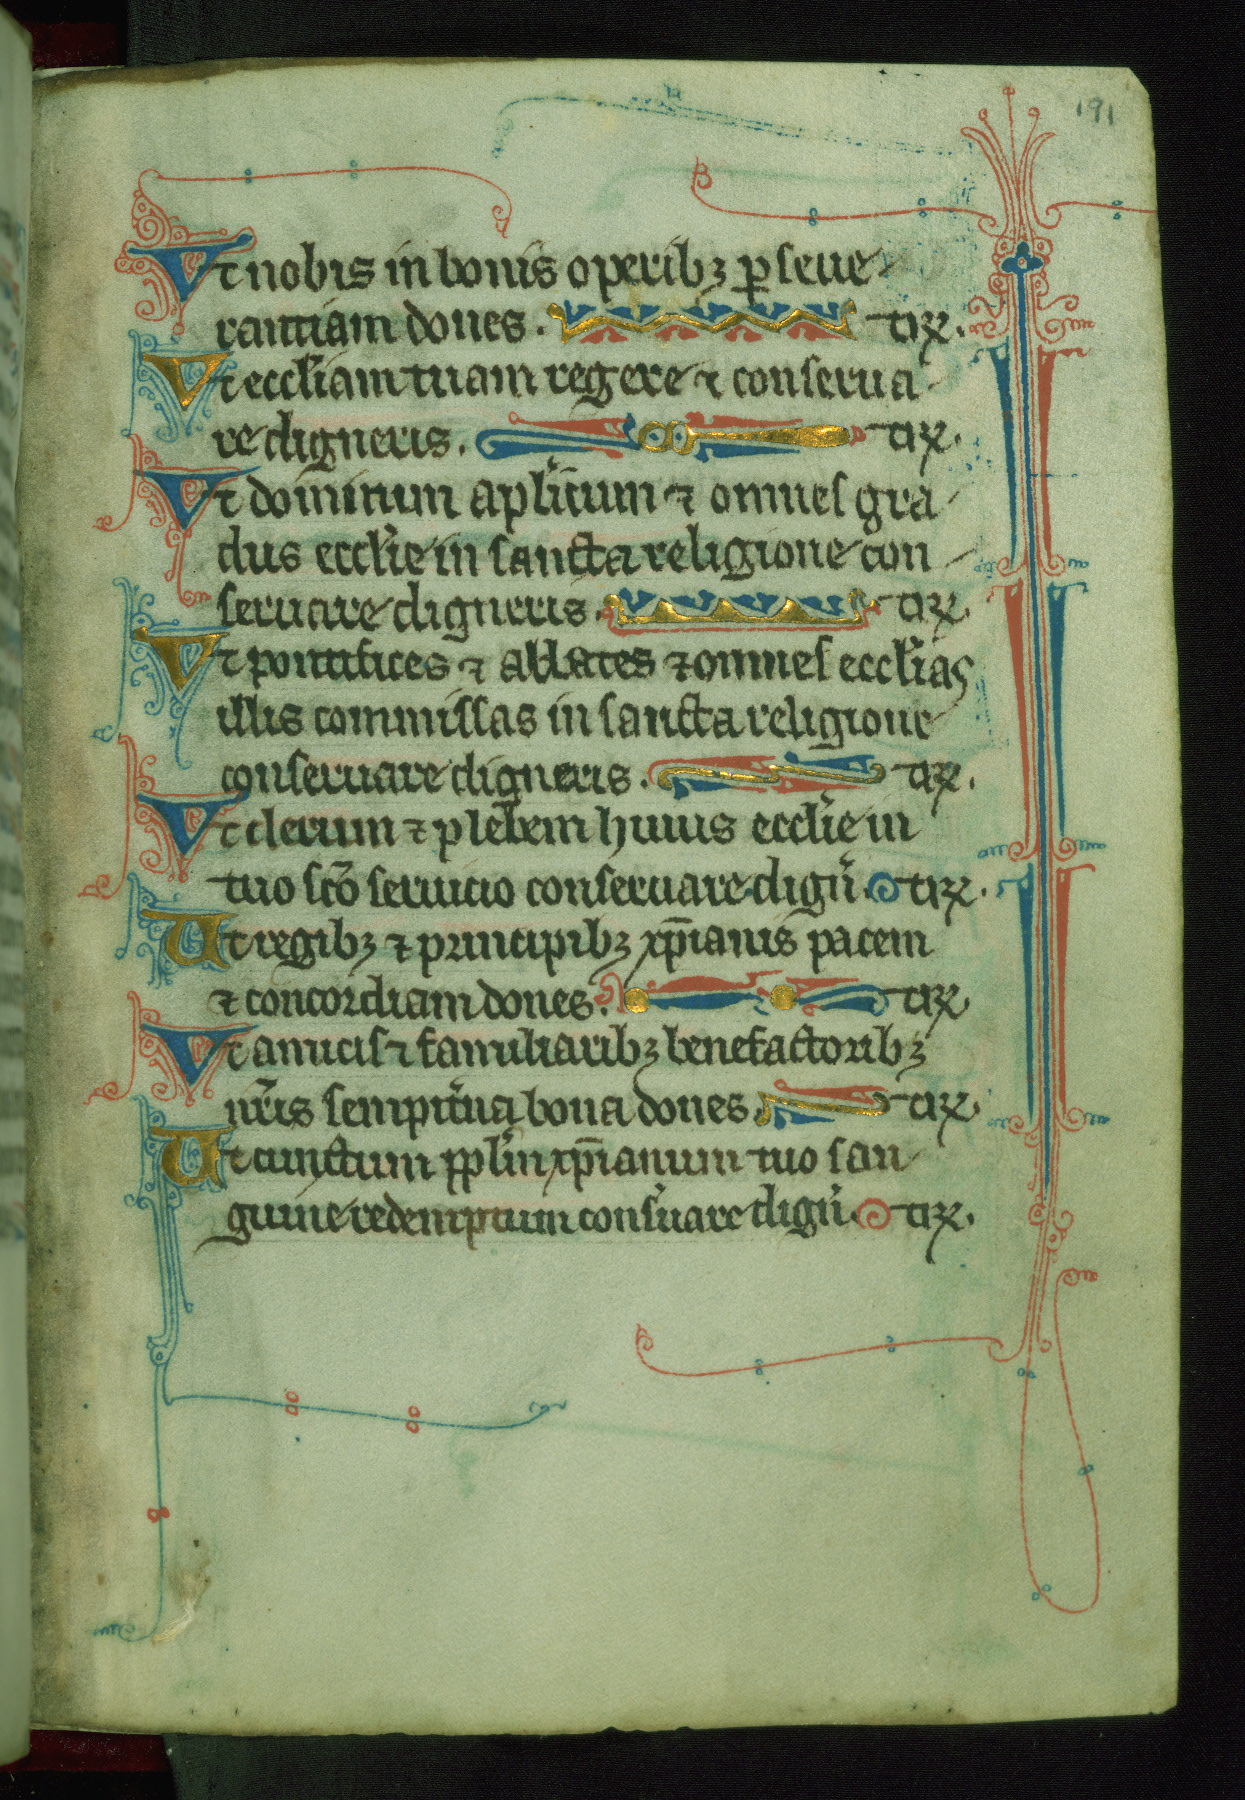 191
Vt nobis in bonis operibꝫ ꝑseue
rantiam dones . t͛ꝝ.
Vt eccl̓iam tuam regere ⁊ conserua
re digneris . t͛ꝝ.
Vt dominum apl̓icum ⁊ omnes gra
dus eccl̓ie in sancta religione con
seruare digneris . t͛ꝝ
Vt pontifices ⁊ abbates ⁊ omnes eccl̓ias
illis commissas in sancta religione
conseruare digneris . t͛ꝝ.
Vt clerum ⁊ plebem huius eccl̓ie in
tuo sc̄o seruicio conseruare dign̓ . t͛ꝝ.
Ut regibꝫ ⁊ principibꝫ xp̄ianis pacem
⁊ concordiam dones . t͛ꝝ
Vt amicis ⁊ familiaribꝫ benefactoribꝫ
nr̄is sempit̓na bona dones . t͛ꝝ.
Ut cunctum ppl̓m xp̄ianum tuo san
guine redemptum cons̓uare dign̓ . t͛ꝝ.